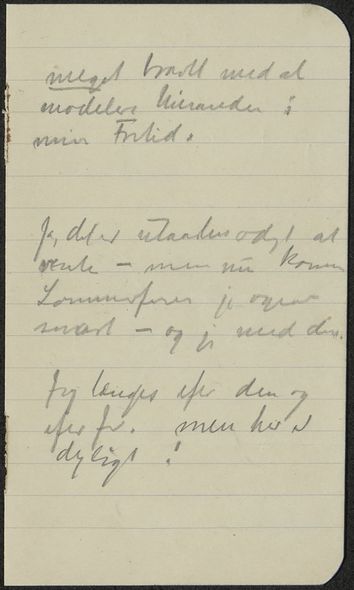 meget travlt med at
modelere hinanden i
min Fritid.
Ja, det er utaalmodigt at
vente – men nu kommer
Sommerferien jo ogsaa
snart – og jeg med den.
Jeg længes efter den og
efter jer. men her er
dejligt!